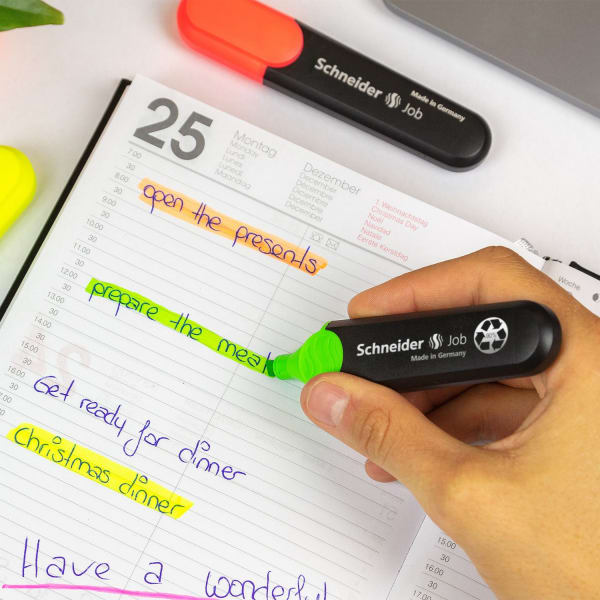 Schneider Job
Made in Germany
25
Montag
Monday
Lundi
Lunes
Lunedì
Maandag
Dezember
December
Décembre
Diciembre
Dicembre
December
1. Weihnachtstag
Christmas Day
Noël
Navidad
Natale
Eerste Kerstdag
7.00
30
8.00
30
9.00
30
10.00
30
11.00
30
12.00
30
13.00
30
14.00
30
15.00
30
16.00
30
17.00
30
open the presents
prepare the meal
Get ready for dinner
Christmas dinner
Have a wonderful
Schneider Job
Made in Germany
Woche
15.00
30
16.00
30
17.00
30